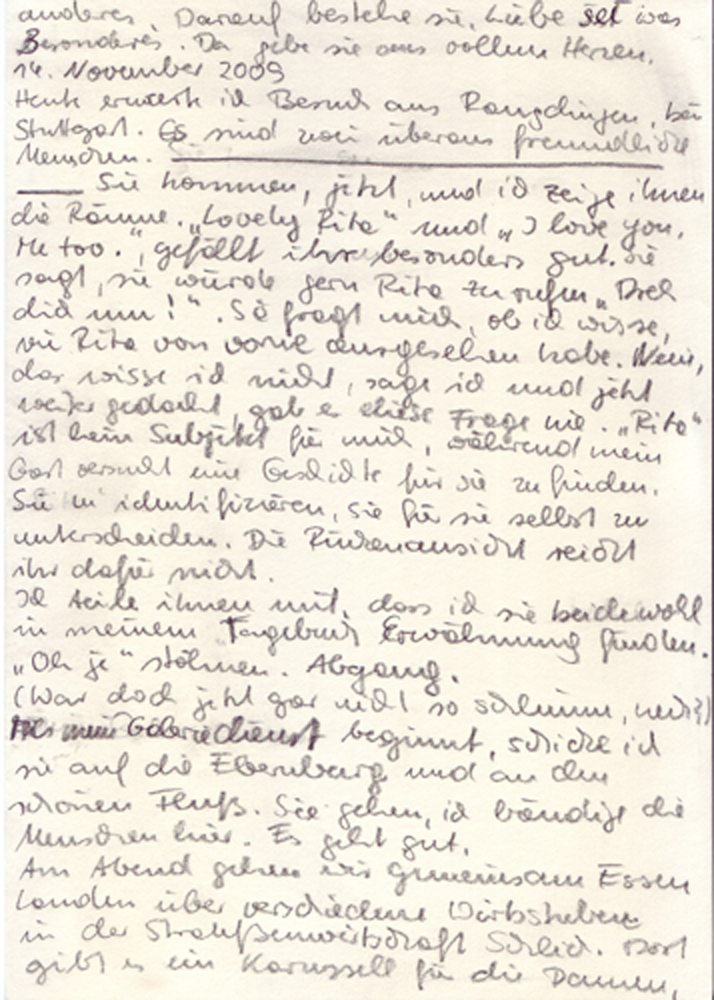 anderes. Darauf bestehe sie. Liebe sei was
Besonderes. Da gebe sie aus vollem Herzen.
14. November 2009
Heute erwarte ich Besuch aus bei
Stuttgart. Es sind zwei überaus freundliche
Menschen.
Sie kommen, jetzt, und ich zeige ihnen
die Räume. „Lovely Rita“ und „I love you.
Me too.“, gefällt ihr besonders gut. Sie
sagt, sie würde gern Rita zurufen „Dreh
dich um!“. Sie fragt mich, ob ich wisse,
wie Rita von vorne ausgesehen habe. Nein,
das wisse ich nicht, sage ich und jetzt
weiter gedacht, gab es diese Frage nie. „Rita“
ist kein Subjekt für mich, während mein
Gast versucht eine Geschichte für sie zu finden.
Sie zu identifizieren, sie für sie selbst zu
unterscheiden. Die Rückenansicht reicht
ihr dafür nicht.
Ich teile ihnen mit, dass ich sie beide wohl
in meinem Tagebuch Erwähnung finden.
„Oh je“ stöhnen. Abgang.
(War doch jetzt gar nicht so schlimm,
Als mein Galeriedienst beginnt, schicke ich
sie auf die Ebernburg und an den
schönen Fluß. Sie gehen, ich bändige die
Menschen hier. Es geht gut.
Am Abend gehen wir gemeinsam Essen
landen über verschiedene
in der Straußenwirtschaft Schlich. Dort
gibt es ein Karussell für die Damen,